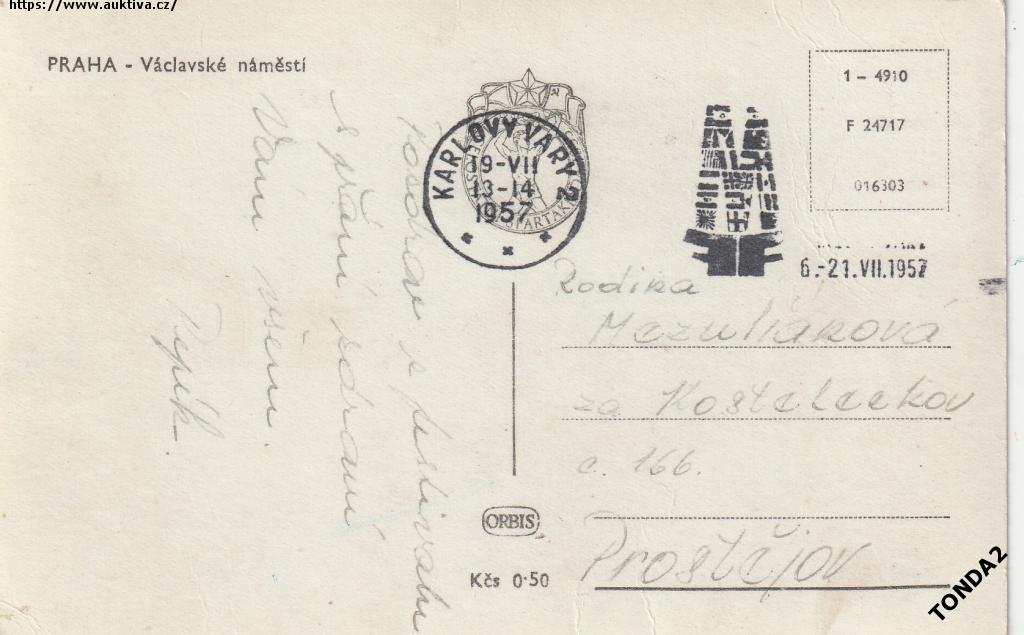 https://www.auktiva.cz/
PRAHA - Václavské náměstí
1 - 4910
F 24717
016303
KARLOVY VARY 2
19-VII
13-14
1957
SPARTAK
6.-21.VII.1957
Pozdrav s festivalu
s přání zdraví
Vám všem.
Pepík.
Rodina
za Kosteleckou
c. 166.
Prostějov
ORBIS
Kčs 0·50
TONDA2